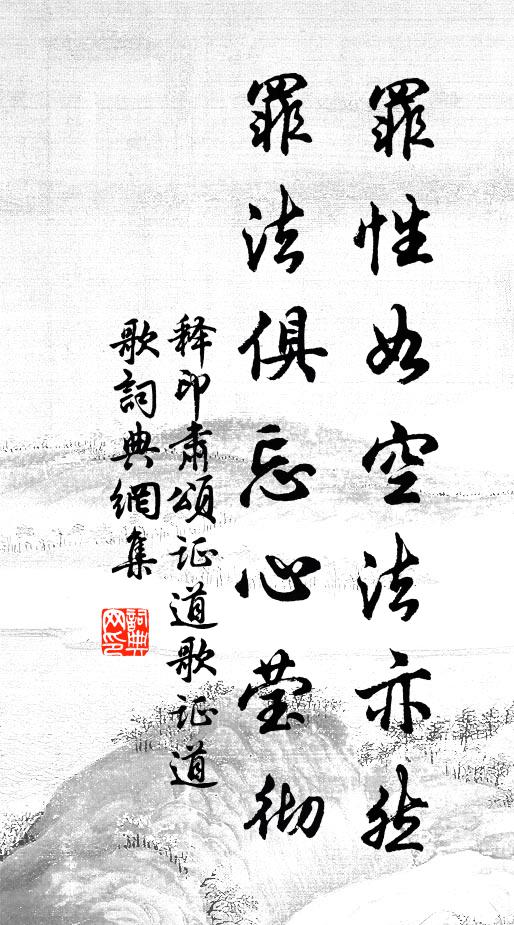 罪性如空法亦然
罪法俱忘心莹彻
释印肃颂证道歌证道
歌詞典網集